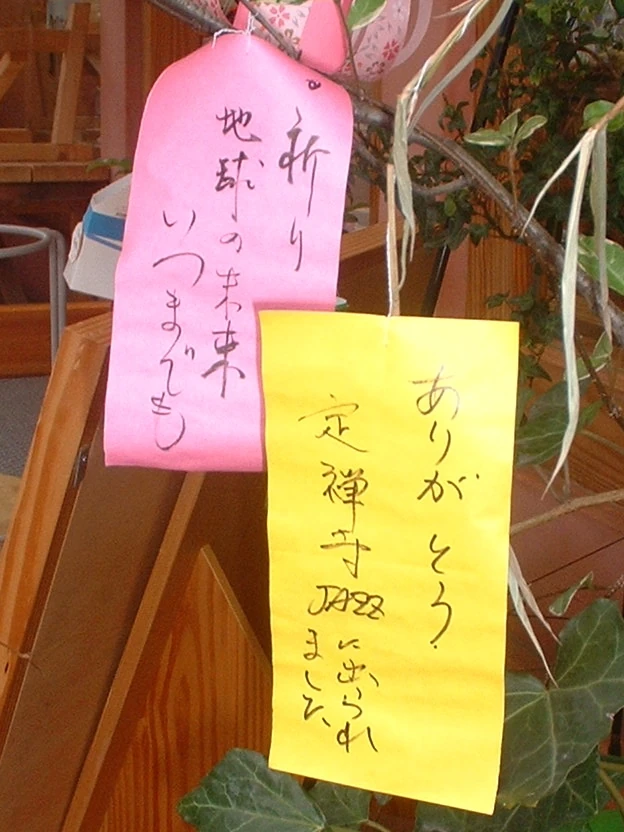 祈り
地球の未来
いつまでも
ありがとう
定禅寺JAZZに出られ
ました